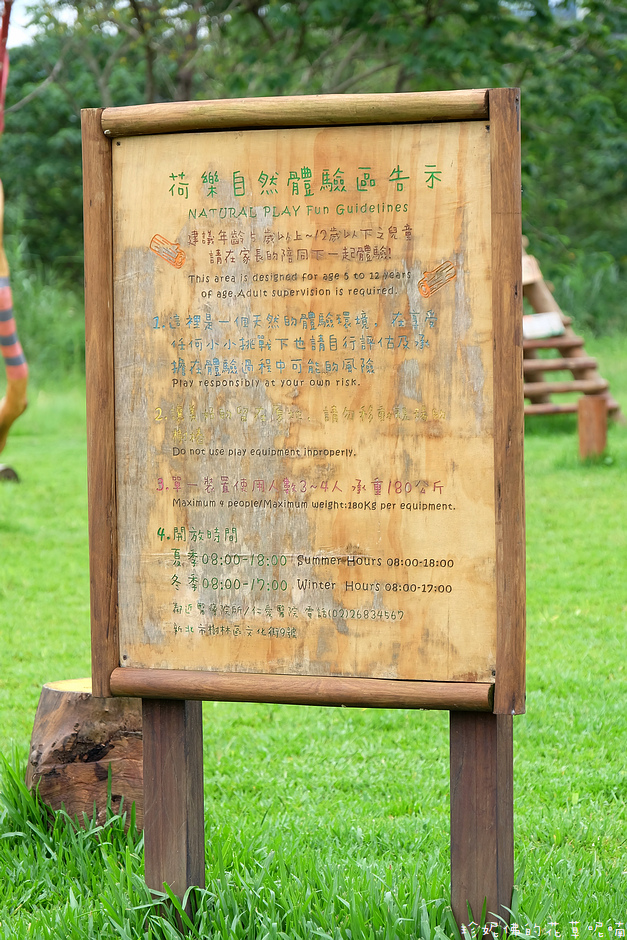 荷樂自然體驗區告示
NATURAL PLAY Fun Guidelines
建議年齡5歲以上~12歲以下之兒童
請在家長的陪同下一起體驗!
This area is designed for age 5 to 12 years
of age,Adult supervision is required.
1.這裡是一個天然的體驗環境，在享受
任何小小挑戰下也請自行評估及承
擔在體驗過程中可能的風險
Play responsibly at your own risk.
2.
請勿移動
Do not use play equipment inproperly.
3.單一裝置使用人數3~4人 承重180公斤
Maximum 4 people/Maximum weight:180Kg per equipment.
4.開放時間
夏季08:00-18:00 Summer Hours 08:00-18:00
冬季08:00-17:00 Winter Hours 08:00-17:00
鄰近醫療院所/仁愛醫院 電話(02)26834567
新北市樹林區文化街9號
珍妮佛的花草呢喃